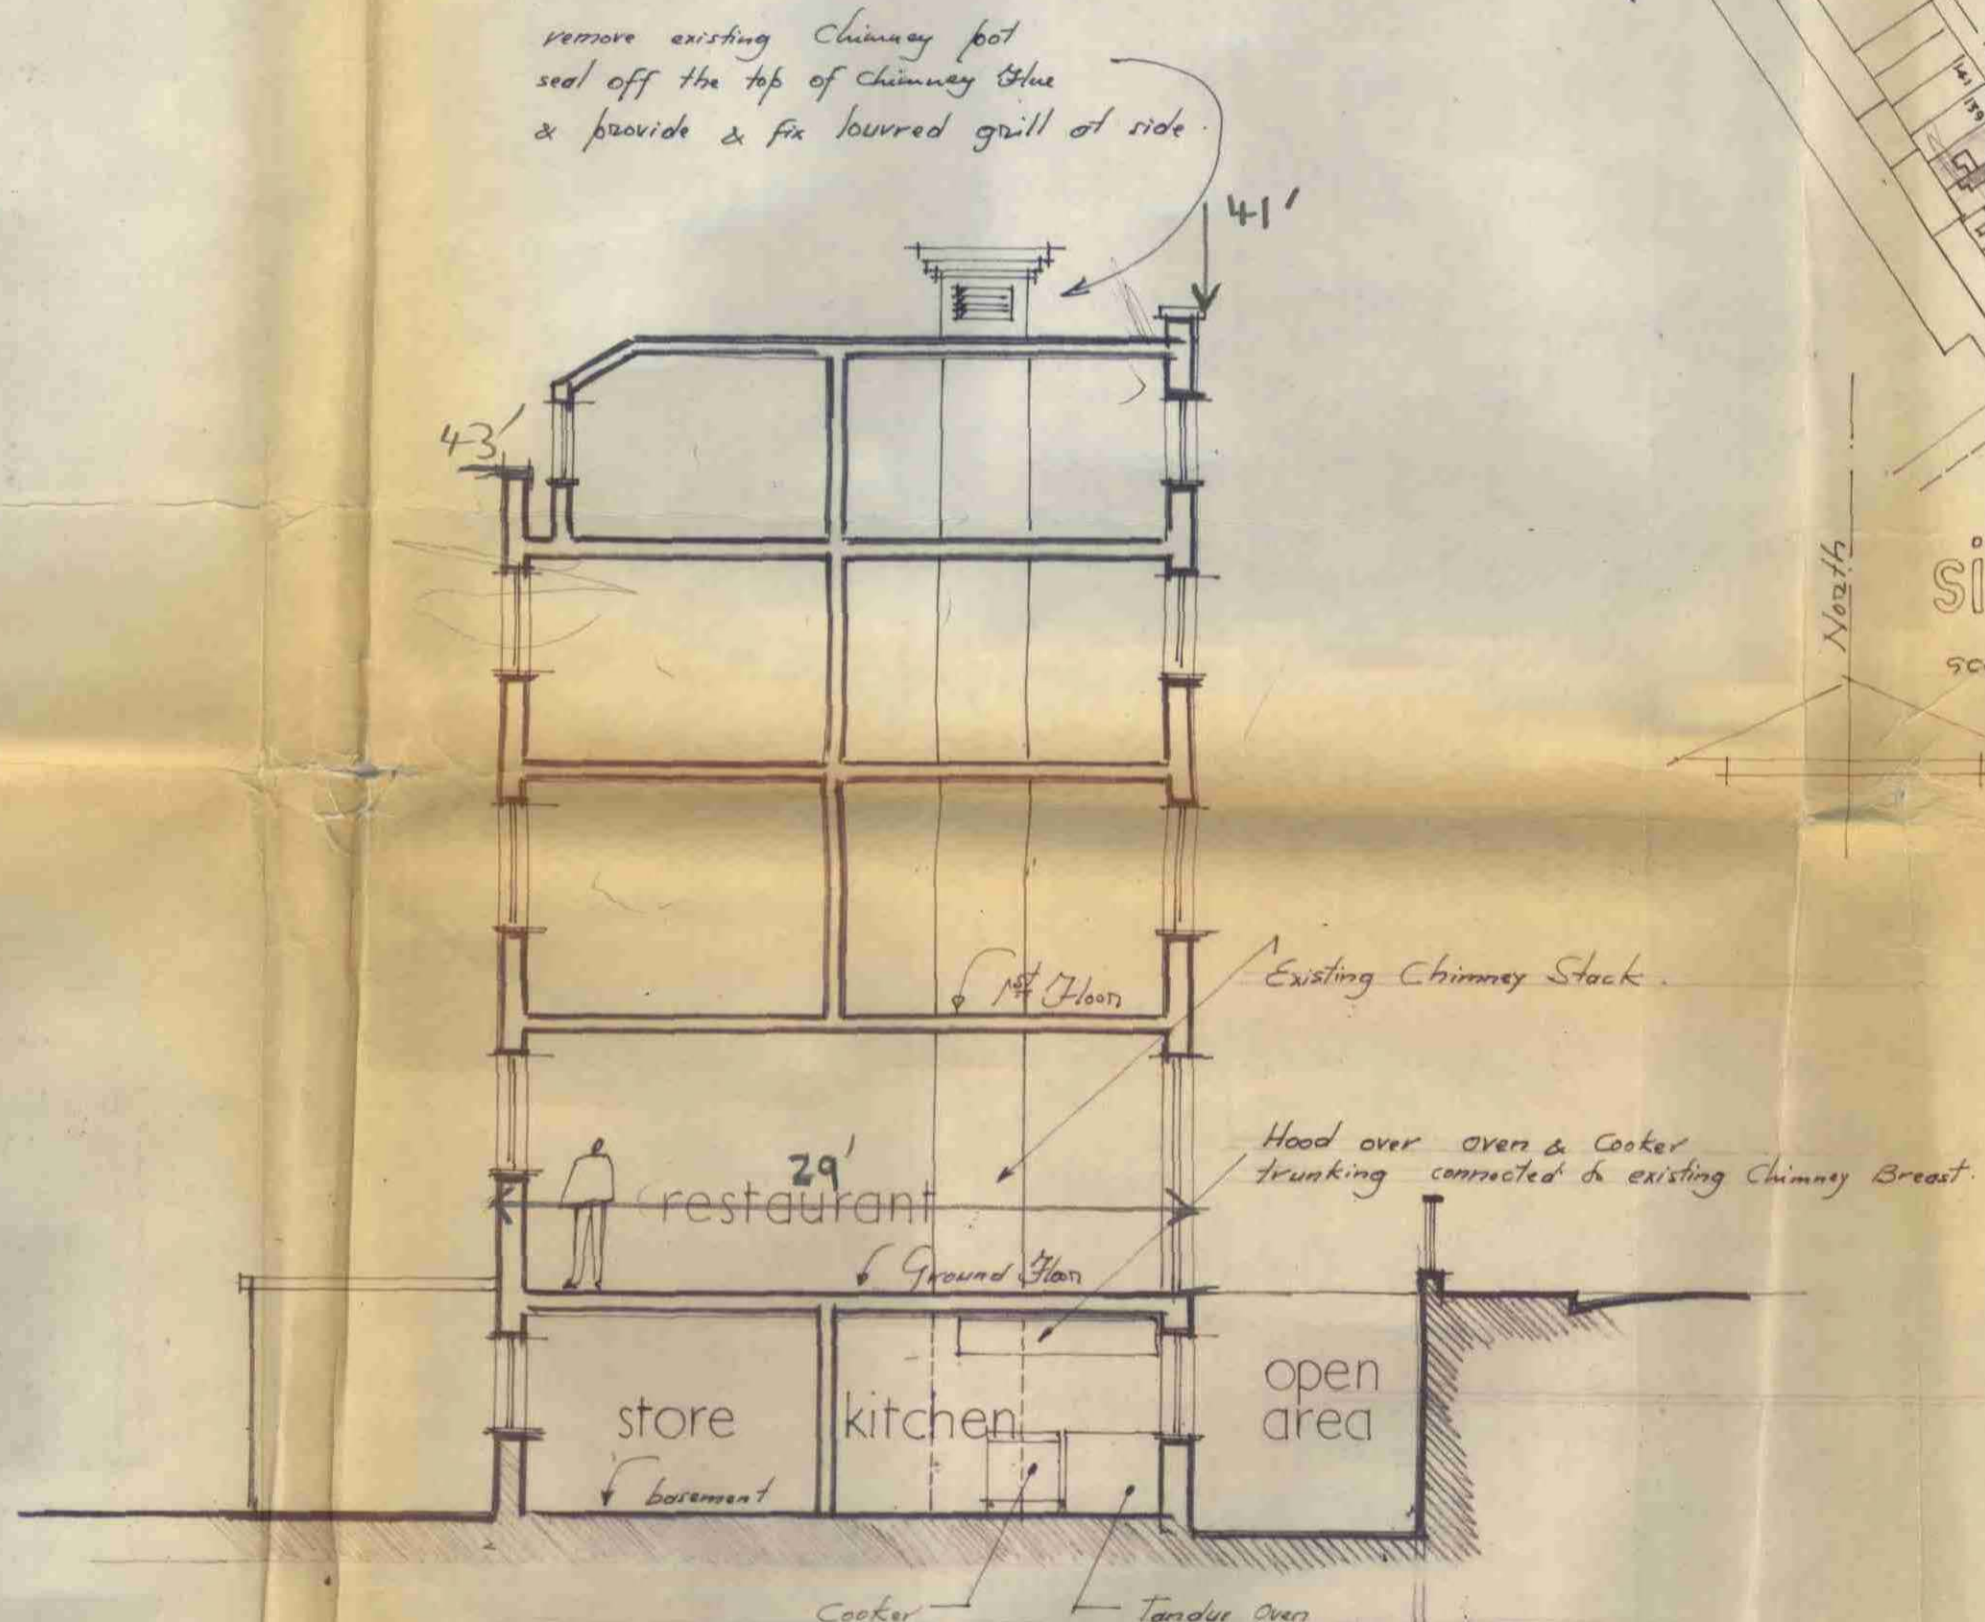 remove existing Chimney pot
seal off the top of Chimney Flue
& provide & fix louvred grill at side.
41'
43'
141
139
North
1st Floor
Existing Chimney Stack.
Hood over oven & Cooker
trunking connected to existing Chimney Breast.
29'
restaurant
Ground Floor
open
area
store
kitchen
basement
Cooker
Tandur Oven